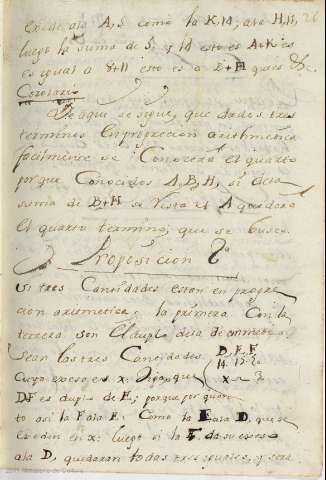 excede ala A, S como la K, 14; ala H, 11, 26
luego la suma de S, y 14 esto es A+K es
es igual a 8+11 esto es a B+H que es &c.
Corolario
De aqui se sigue, que dados tres
terminos en proporcion arithmetica
facilmente se Conocera el quarto
porque Conocidos A, B, H, si dela
suma de B+H se resta el A quedara
el quarto termino, que se busca.
Proposicion
si tres Cantidades estan en progre
cion aritmetica; la primera Con la
tercera son el duplo dela de enmedio.
sean las tres Cantidades D, E, F
Cuyo exceso es x: Digo, que
DF es duplo de E; porque por quan
to asi la F ala E. Como la E ala D, que se
exceden en x: luego si la F. da su exceso
ala D, quedaran todas tres iguales, y sera